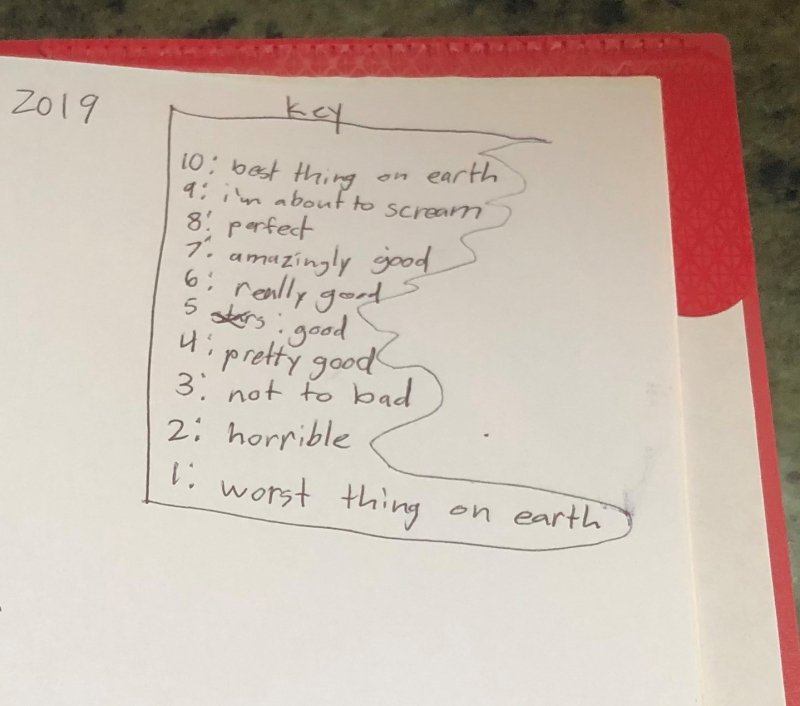 2019
Key
10: best thing on earth
9: i'm about to scream
8: perfect
7: amazingly good
6: really good
5 stars: good
4: pretty good
3: not to bad
2: horrible
1: worst thing on earth